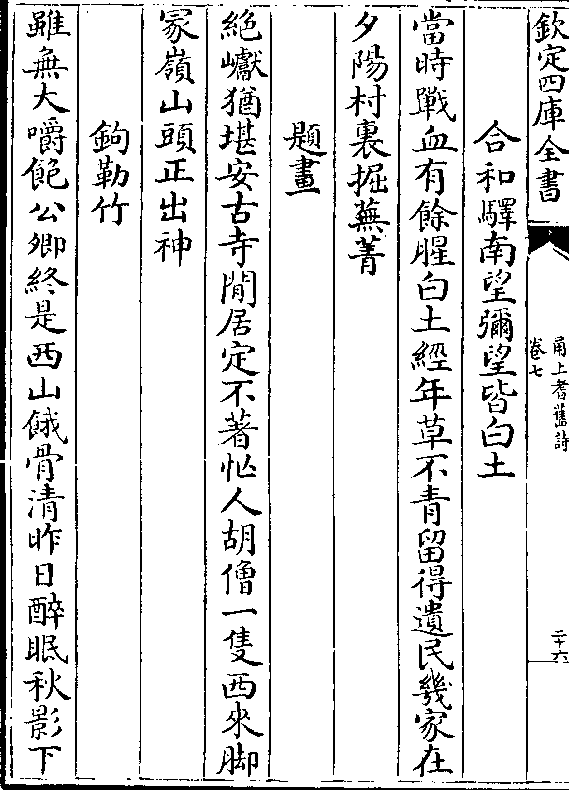 欽定四庫全書
甬上耆舊詩
卷七
二十六
合和驛南望彌望皆白土
當時戰血有餘腥白土經年草不青留得遺民幾家在
夕陽村裏掘蕪菁
題畫
絶巘猶堪安古寺閒居定不著忙人胡僧一隻西來脚
冡嶺山頭正出神
鉤勒竹
雖無大嚼飽公卿終是西山餓骨清昨日醉眠秋影下